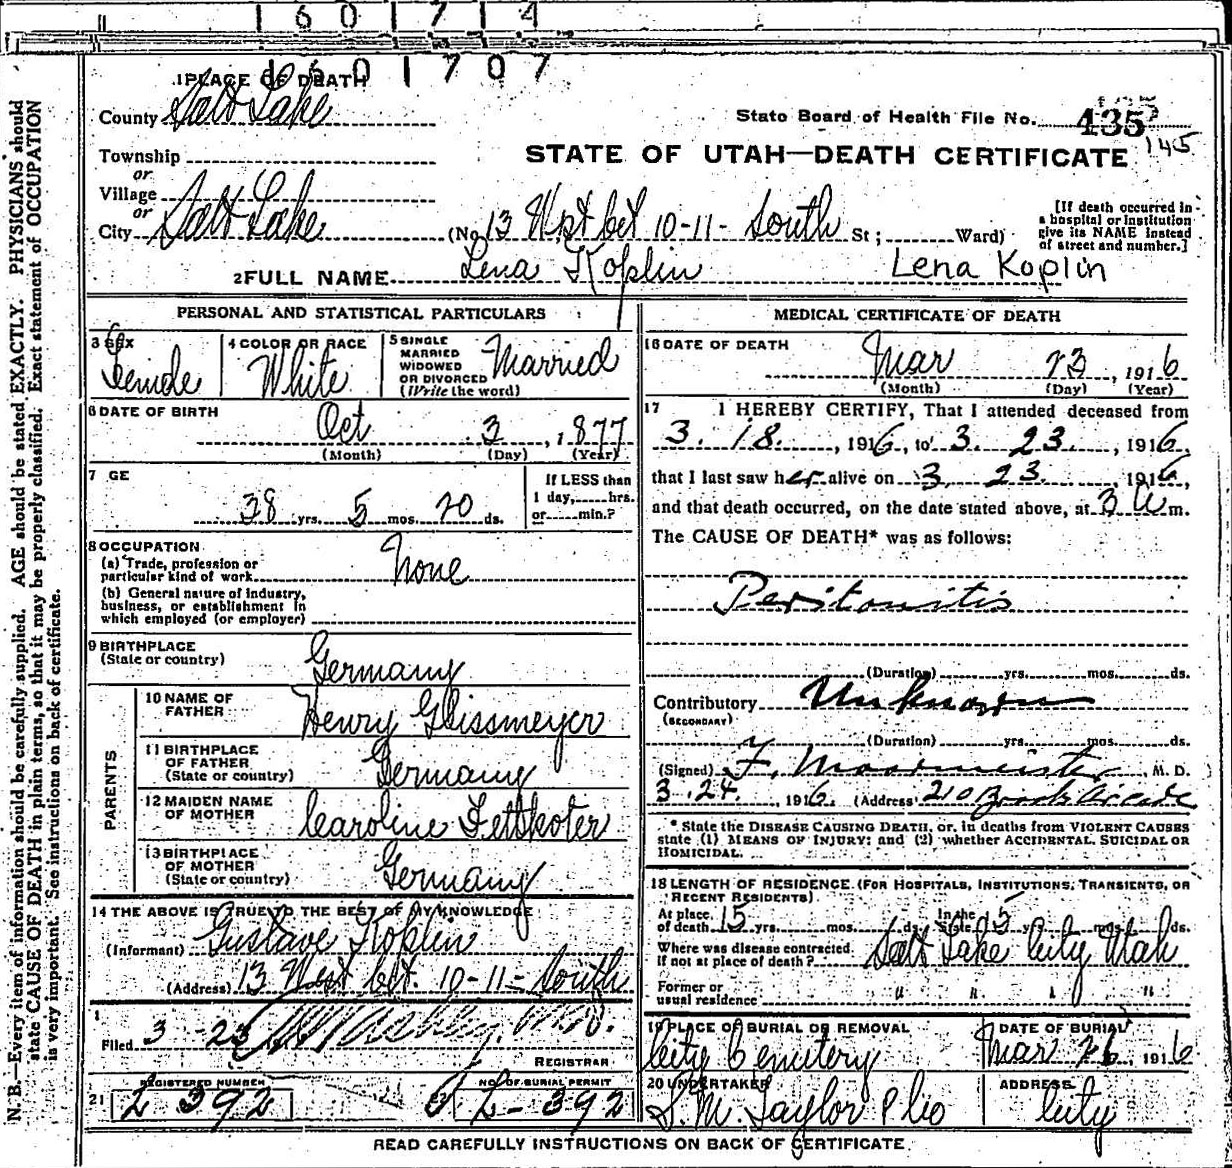 1 6 0 1 7 1 4
1 6 0 1 7 0 7
1 PLACE OF DEATH
County Salt Lake
State Board of Health File No. 435
145
STATE OF UTAH—DEATH CERTIFICATE
Township
or
Village
or
City Salt Lake (No. 13 West bet 10-11- South St; Ward)
[If death occurred in a hospital or institution give its NAME instead of street and number.]
2 FULL NAME Lena Koplin Lena Koplin
PERSONAL AND STATISTICAL PARTICULARS
3 SEX Female
4 COLOR OR RACE White
5 SINGLE MARRIED WIDOWED OR DIVORCED (Write the word) Married
6 DATE OF BIRTH Oct 3, 1877
(Month) (Day) (Year)
7 GE 38 yrs. 5 mos. 20 ds.
If LESS than 1 day, hrs. or min.?
8 OCCUPATION
(a) Trade, profession or particular kind of work None
(b) General nature of industry, business, or establishment in which employed (or employer)
9 BIRTHPLACE
(State or country) Germany
PARENTS
10 NAME OF FATHER Henry Glissmeyer
11 BIRTHPLACE OF FATHER (State or country) Germany
12 MAIDEN NAME OF MOTHER Caroline Fettkoter
13 BIRTHPLACE OF MOTHER (State or country) Germany
14 THE ABOVE IS TRUE TO THE BEST OF MY KNOWLEDGE
(Informant) Gustave Koplin
(Address) 13 West bet. 10-11- South
Filed 3 - 23
REGISTRAR
21 REGISTERED NUMBER 2 392
NO. OF BURIAL PERMIT 2-392
MEDICAL CERTIFICATE OF DEATH
16 DATE OF DEATH Mar 23, 1916
(Month) (Day) (Year)
17 I HEREBY CERTIFY, That I attended deceased from
3. 18., 1916, to 3. 23., 1916,
that I last saw her alive on 3 23, 1916,
and that death occurred, on the date stated above, at 3 a m.
The CAUSE OF DEATH* was as follows:
Peritonitis
(Duration) yrs. mos. ds.
Contributory Unknown
(SECONDARY)
(Duration) yrs. mos. ds.
(Signed) F. Moormeister, M. D.
3.24., 1916. (Address) 210 Brooks Arcade
* State the DISEASE CAUSING DEATH, or, in deaths from VIOLENT CAUSES
state (1) MEANS OF INJURY; and (2) whether ACCIDENTAL, SUICIDAL OR
HOMICIDAL.
18 LENGTH OF RESIDENCE (FOR HOSPITALS, INSTITUTIONS, TRANSIENTS, OR
RECENT RESIDENTS)
At place of death 15 yrs. mos. ds. In the State 15 yrs. mos. ds.
Where was disease contracted. If not at place of death? Salt Lake City Utah
Former or usual residence " " " "
19 PLACE OF BURIAL OR REMOVAL City Cemetery
DATE OF BURIAL Mar 26, 1916
20 UNDERTAKER S. M. Taylor & Co
ADDRESS City
READ CAREFULLY INSTRUCTIONS ON BACK OF CERTIFICATE.
N. B.—Every item of information should be carefully supplied. AGE should be stated EXACTLY. PHYSICIANS should
state CAUSE OF DEATH in plain terms, so that it may be properly classified. Exact statement of OCCUPATION
is very important. See instructions on back of certificate.